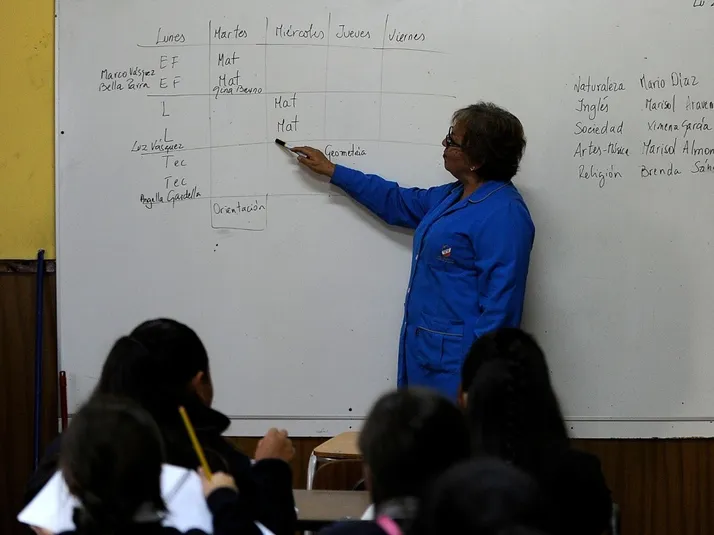 Lunes Martes Miércoles Jueves Viernes
EF Mat
Marco Vásquez
Bella Parra EF Mat
Gina Berno
L Mat
L Mat
Luz Vásquez
Tec Geometría
Tec
Angella Gardella
Orientación
Naturaleza Mario Díaz
Inglés Marisol
Sociedad Ximena García
Artes-Música Marisol
Religión Brenda